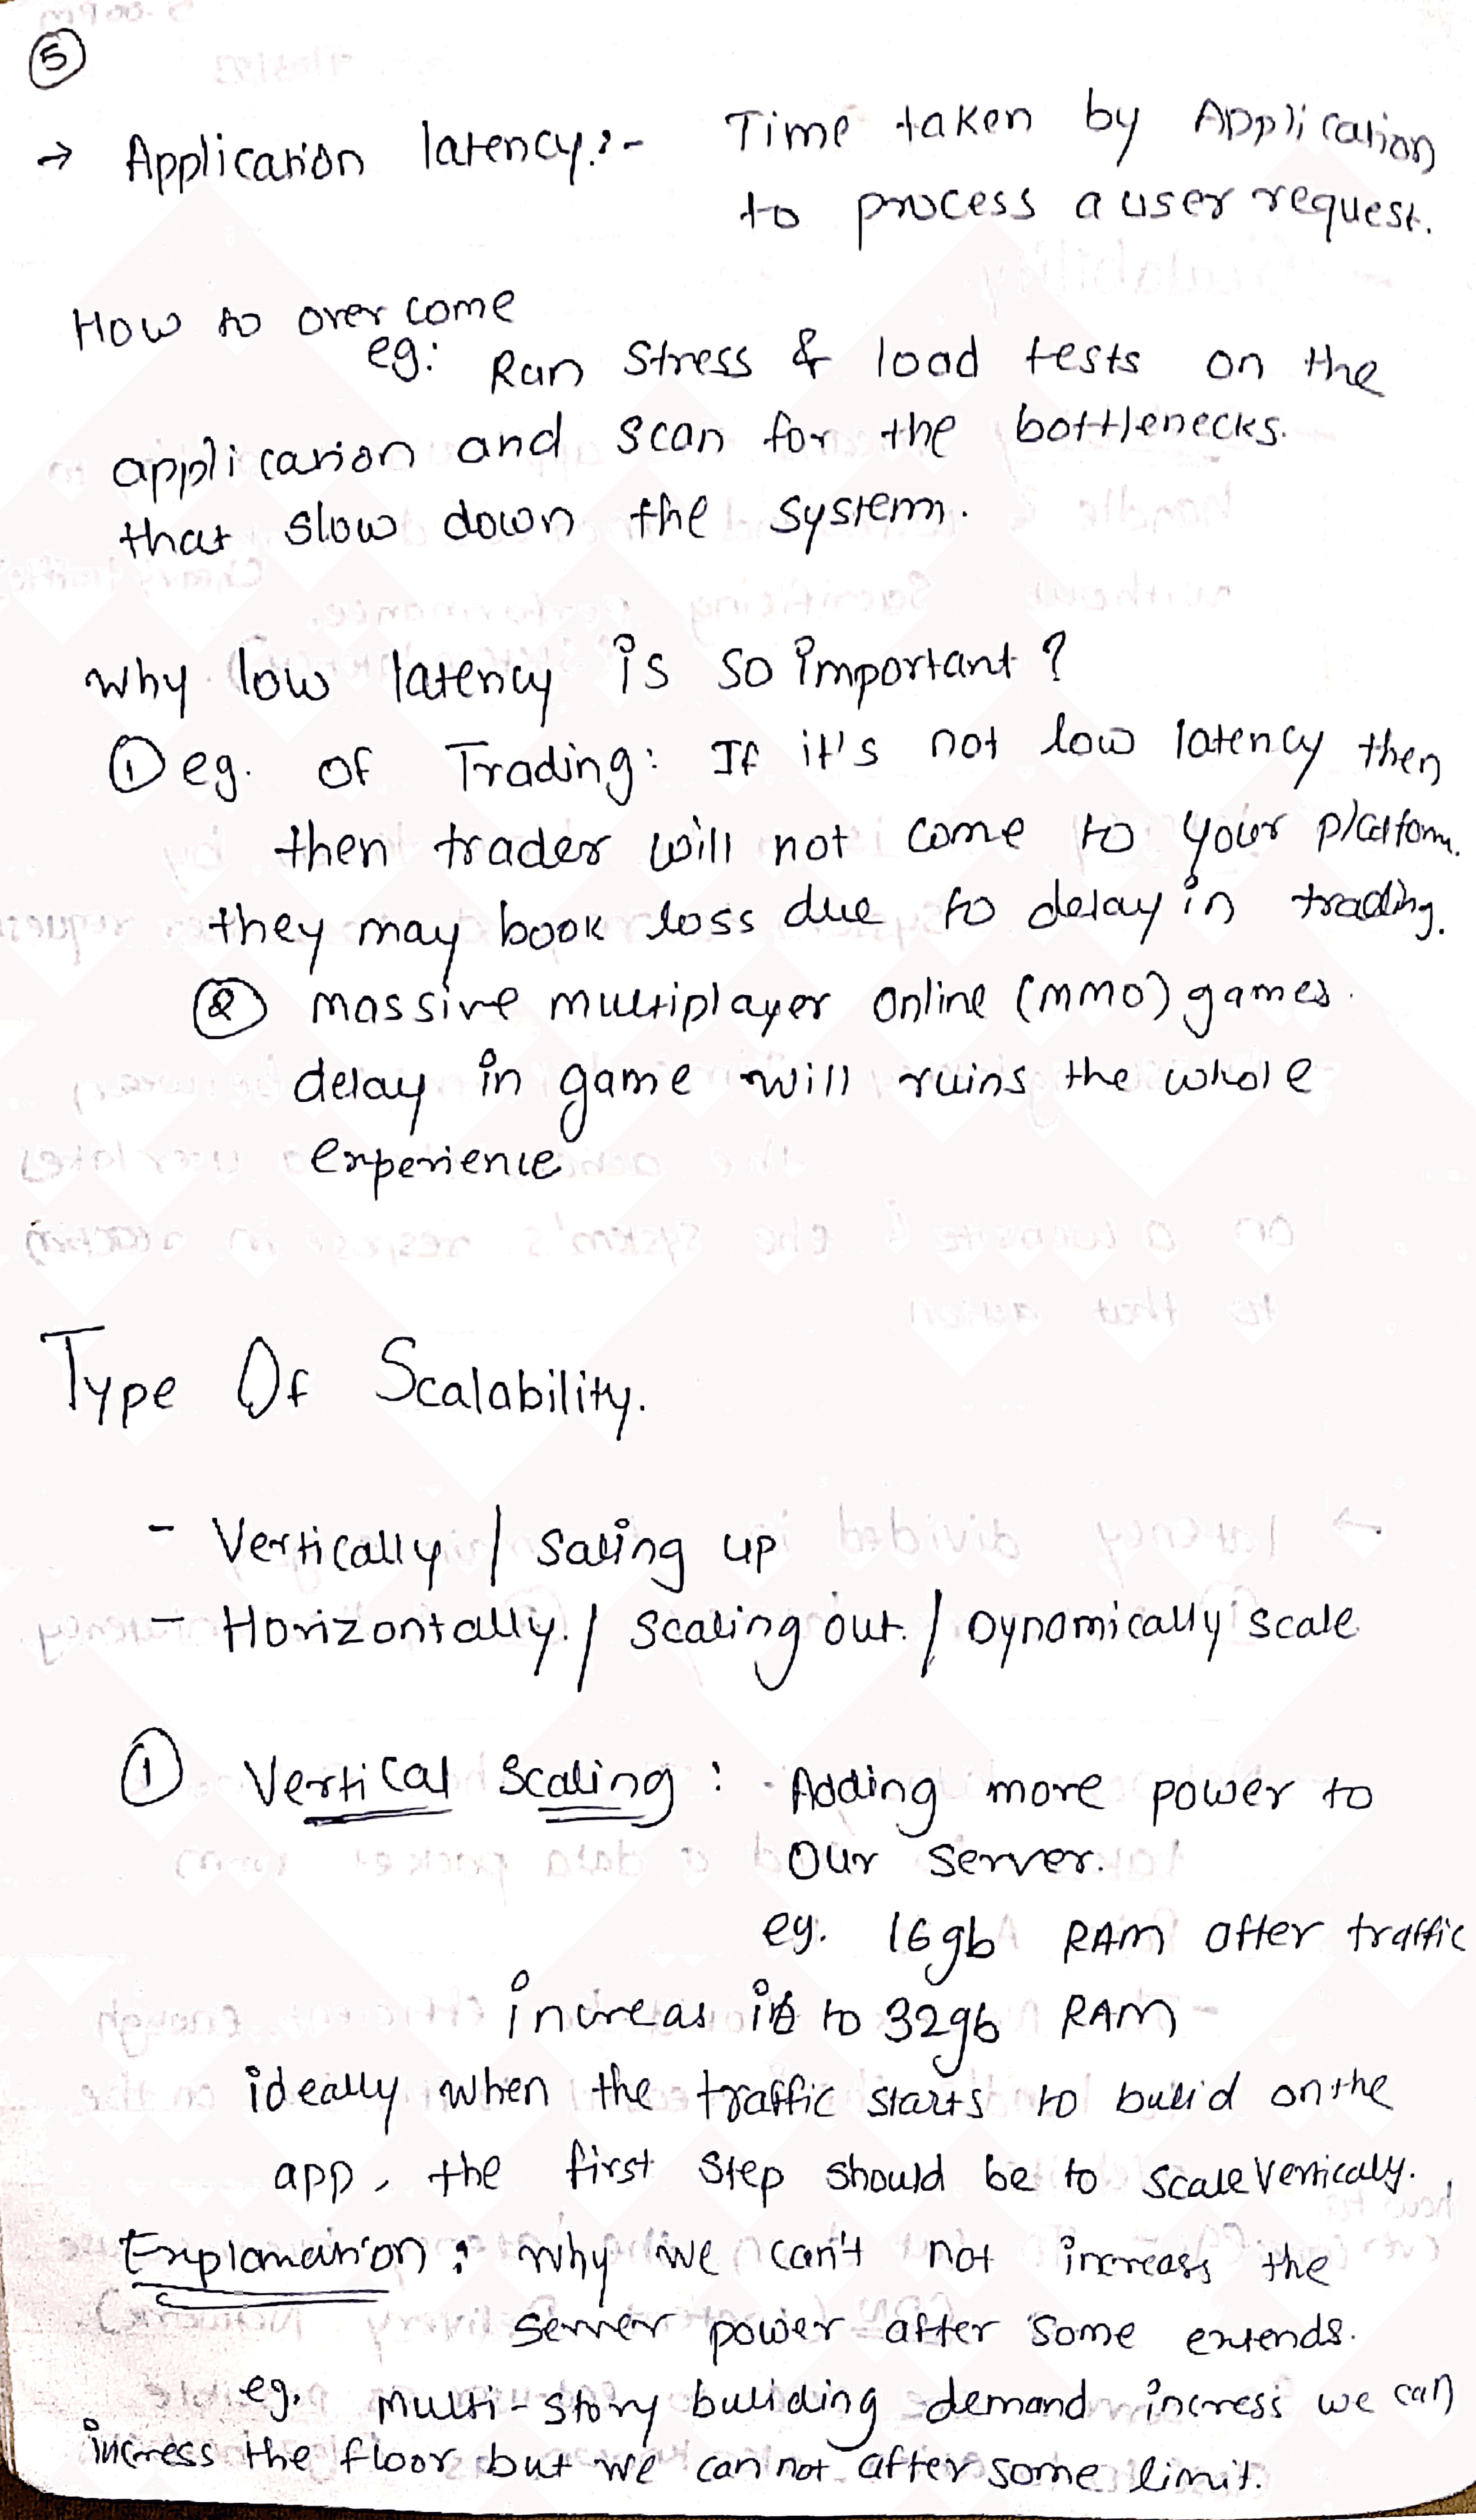 5
→ Application latency :- Time taken by Application
to process a user request.
How to over come
eg: Run Stress & load tests on the
application and scan for the bottlenecks.
that slow down the system.
why low latency is so important ?
① eg. of Trading: If it's not low latency then
then trader will not come to your platform.
they may book loss due to delay in trading.
② massive multiplayer online (MMO) games.
delay in game will ruins the whole
experience
Type Of Scalability.
- Vertically / Saling up
- Horizontally. / scaling out. / Dynamically scale
① Vertical Scaling : - Adding more power to
our server.
eg. 16gb RAM after traffic
increas it to 32gb RAM
ideally when the traffic starts to build on the
app, the first step should be to scale vertically.
Explanation : why we can't not increass the
server power after some extends.
eg. multi-story building demand incress we can
incress the floor but we can not after some limit.